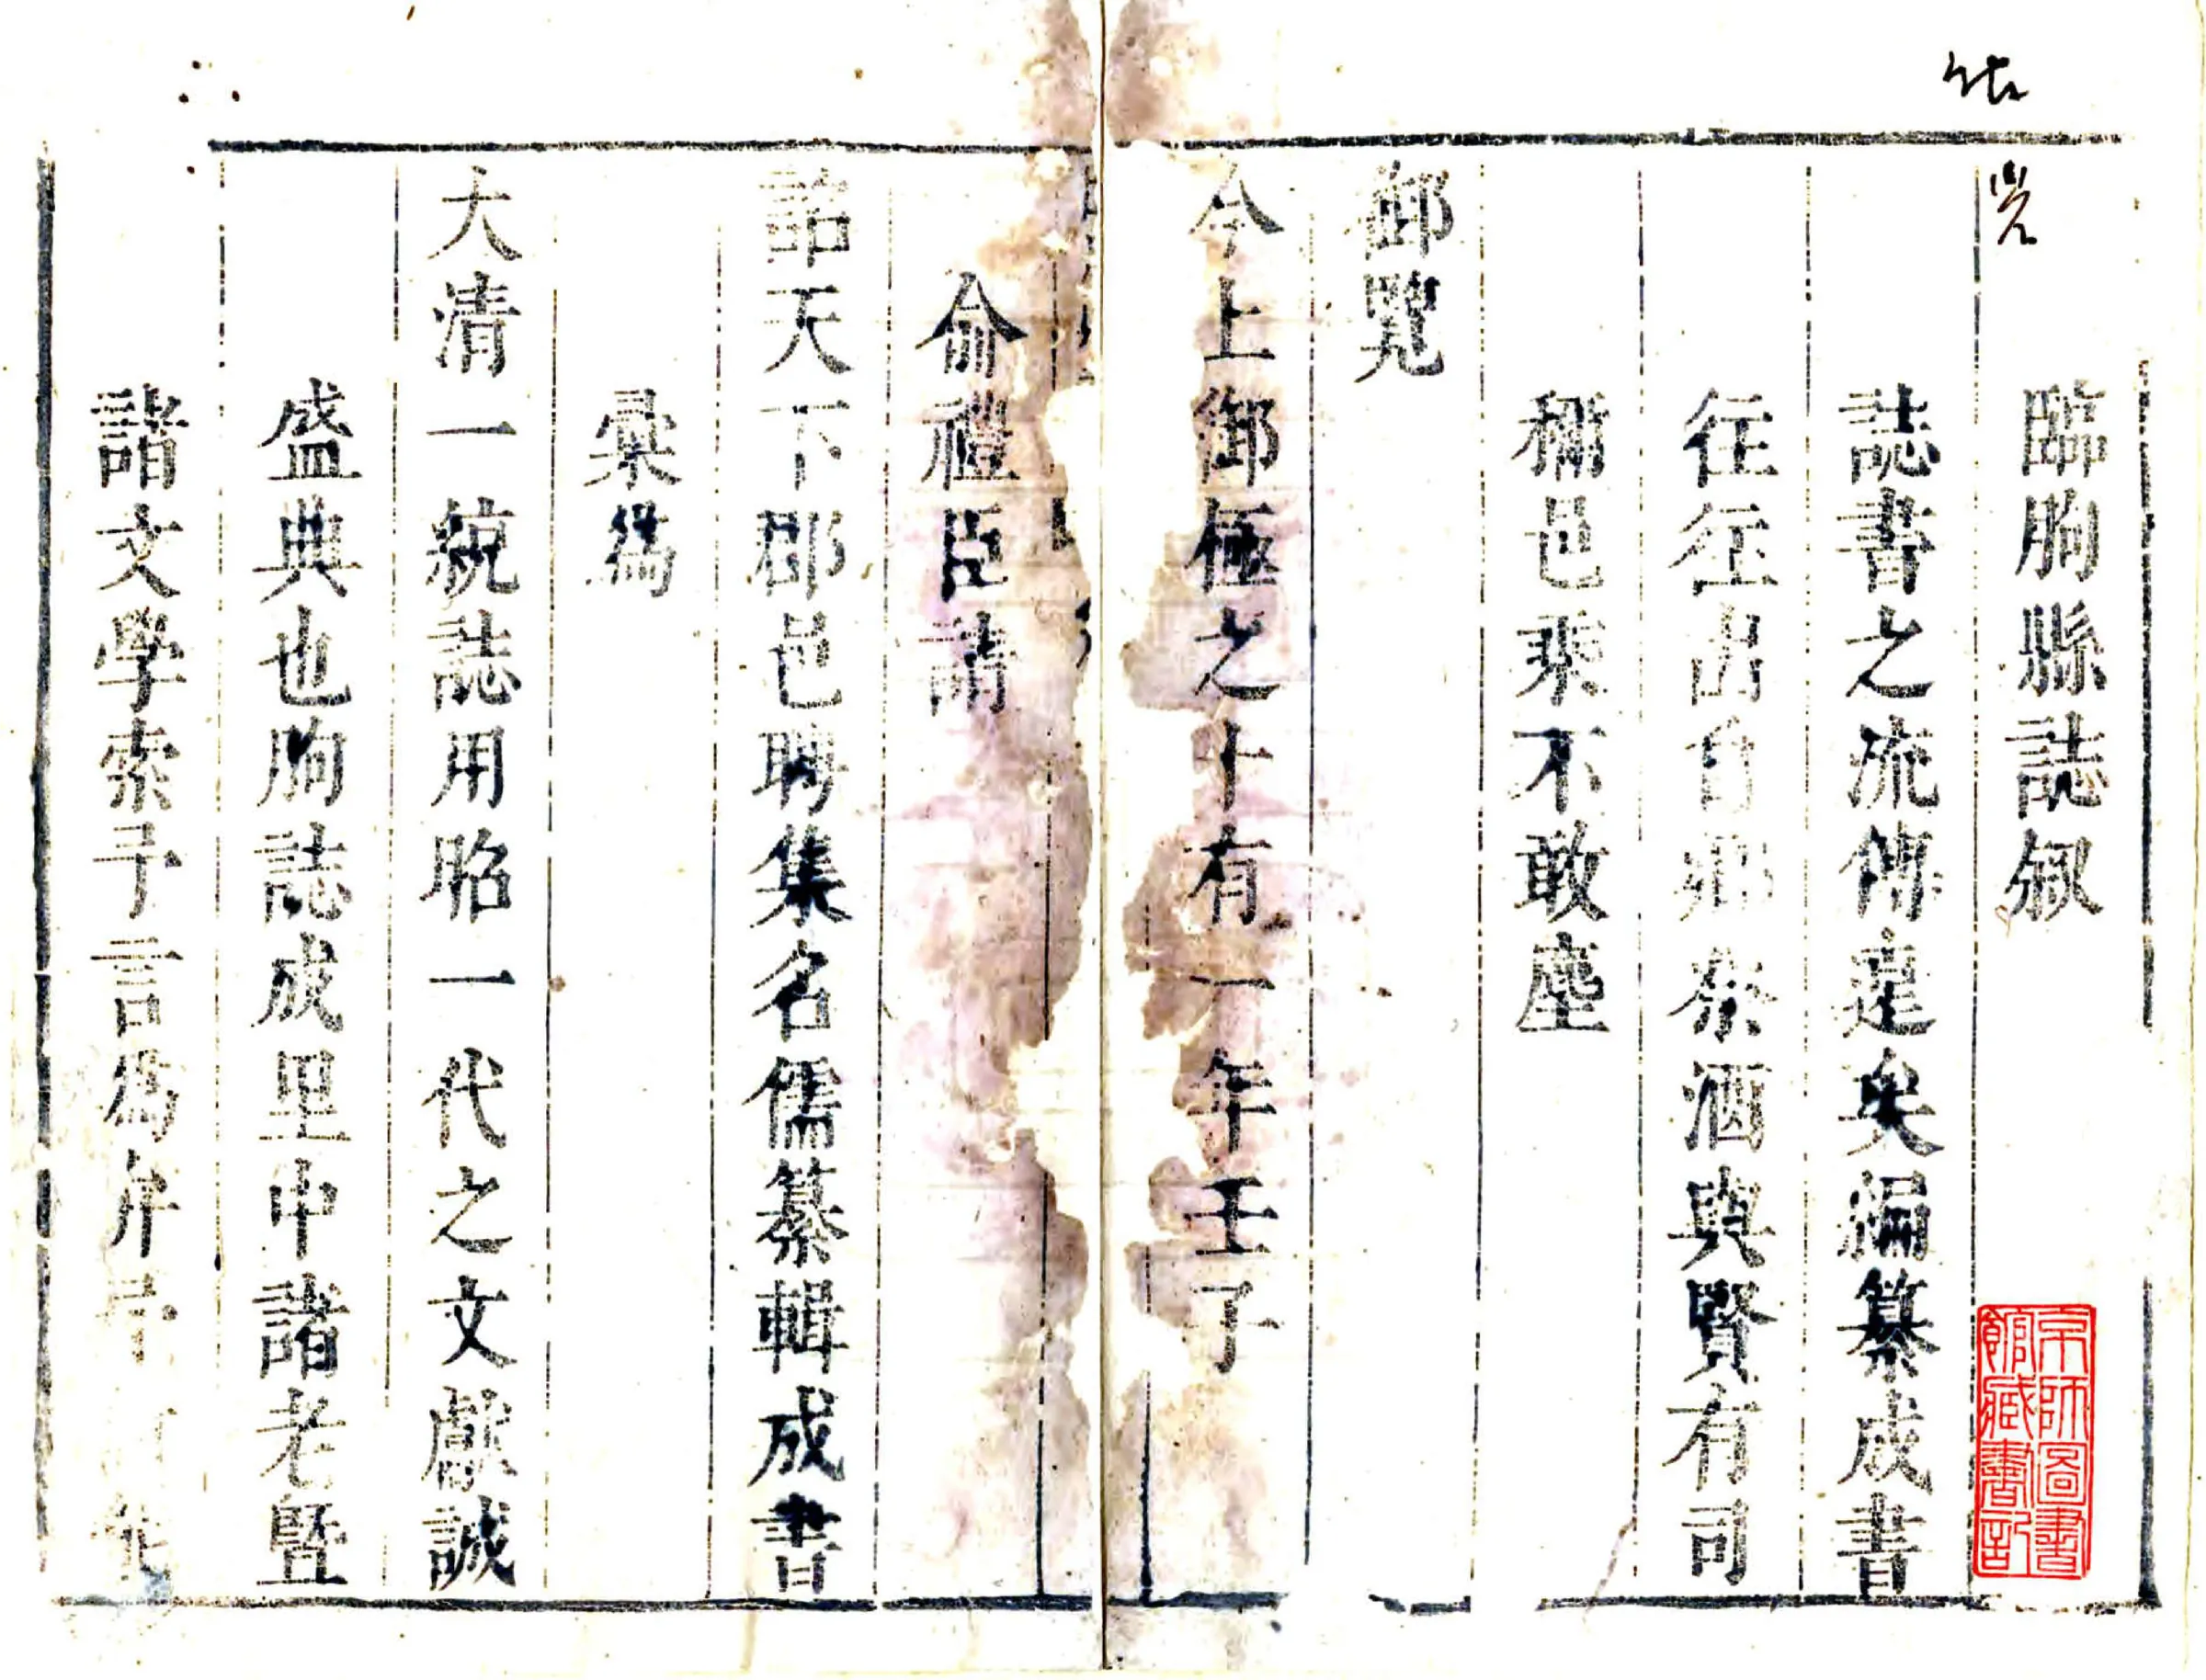 臨朐縣誌敘
誌書之流傳遠矣編纂成書
往往出自鄉祭酒與賢有司
稱邑乘不敢塵
御覽
今上御極之十有一年壬子
俞禮臣請
詔天下郡邑聘集名儒纂輯成書
彙為
大清一統誌用昭一代之文獻誠
盛典也朐誌成里中諸老暨
諸文學索予言為弁予
京師圖書
館藏書記